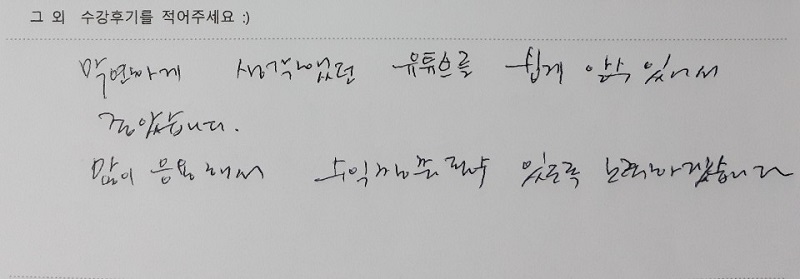 그 외 수강후기를 적어주세요 :)
막연하게 생각했던 유튜브를 쉽게 알수 있어서
좋았습니다.
많이 응용해서 수익창출 할수 있도록 노력하겠습니다